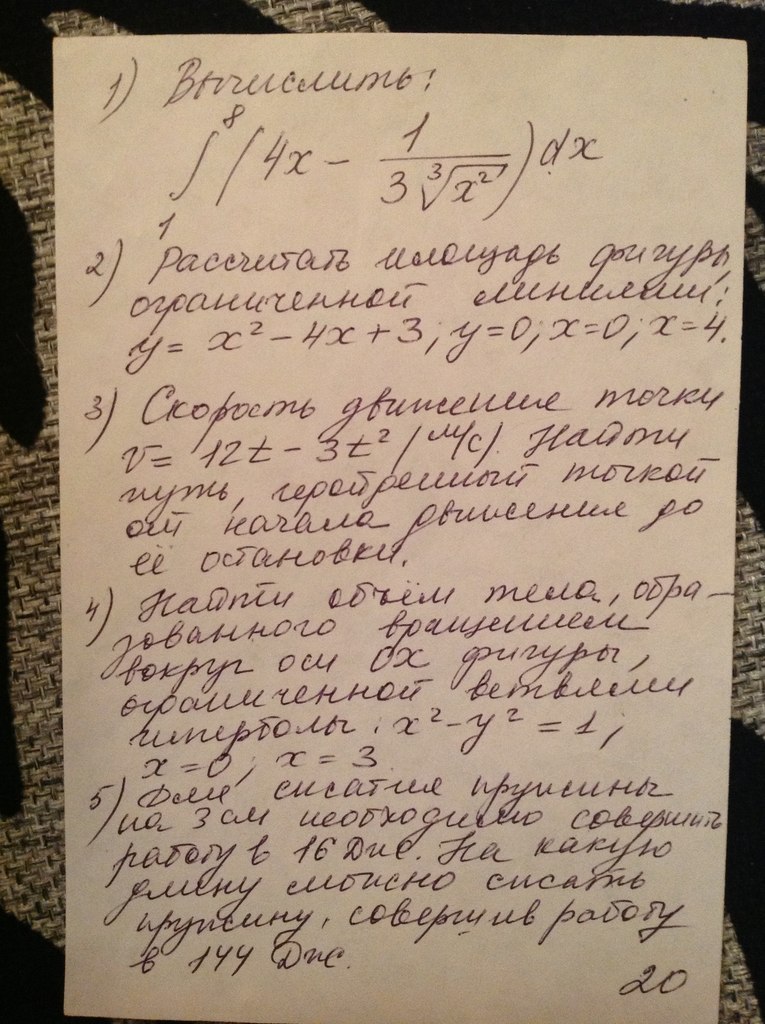 1) Вычислить:
8
∫ (4x - 1 / 3∛x²) dx
1
2) Рассчитать площадь фигуры,
ограниченной линиями:
y = x² - 4x + 3; y=0; x=0; x=4.
3) Скорость движения точки
v = 12t - 3t² (м/с). Найти
путь, пройденный точкой
от начала движения до
её остановки.
4) Найти объём тела, обра-
зованного вращением
вокруг оси OX фигуры,
ограниченной ветвями
гиперболы: x² - y² = 1;
x=0; x=3
5) Для сжатия пружины
на 3 см необходимо совершить
работу в 16 Дж. На какую
длину можно сжать
пружину, совершив работу
в 144 Дж.
20